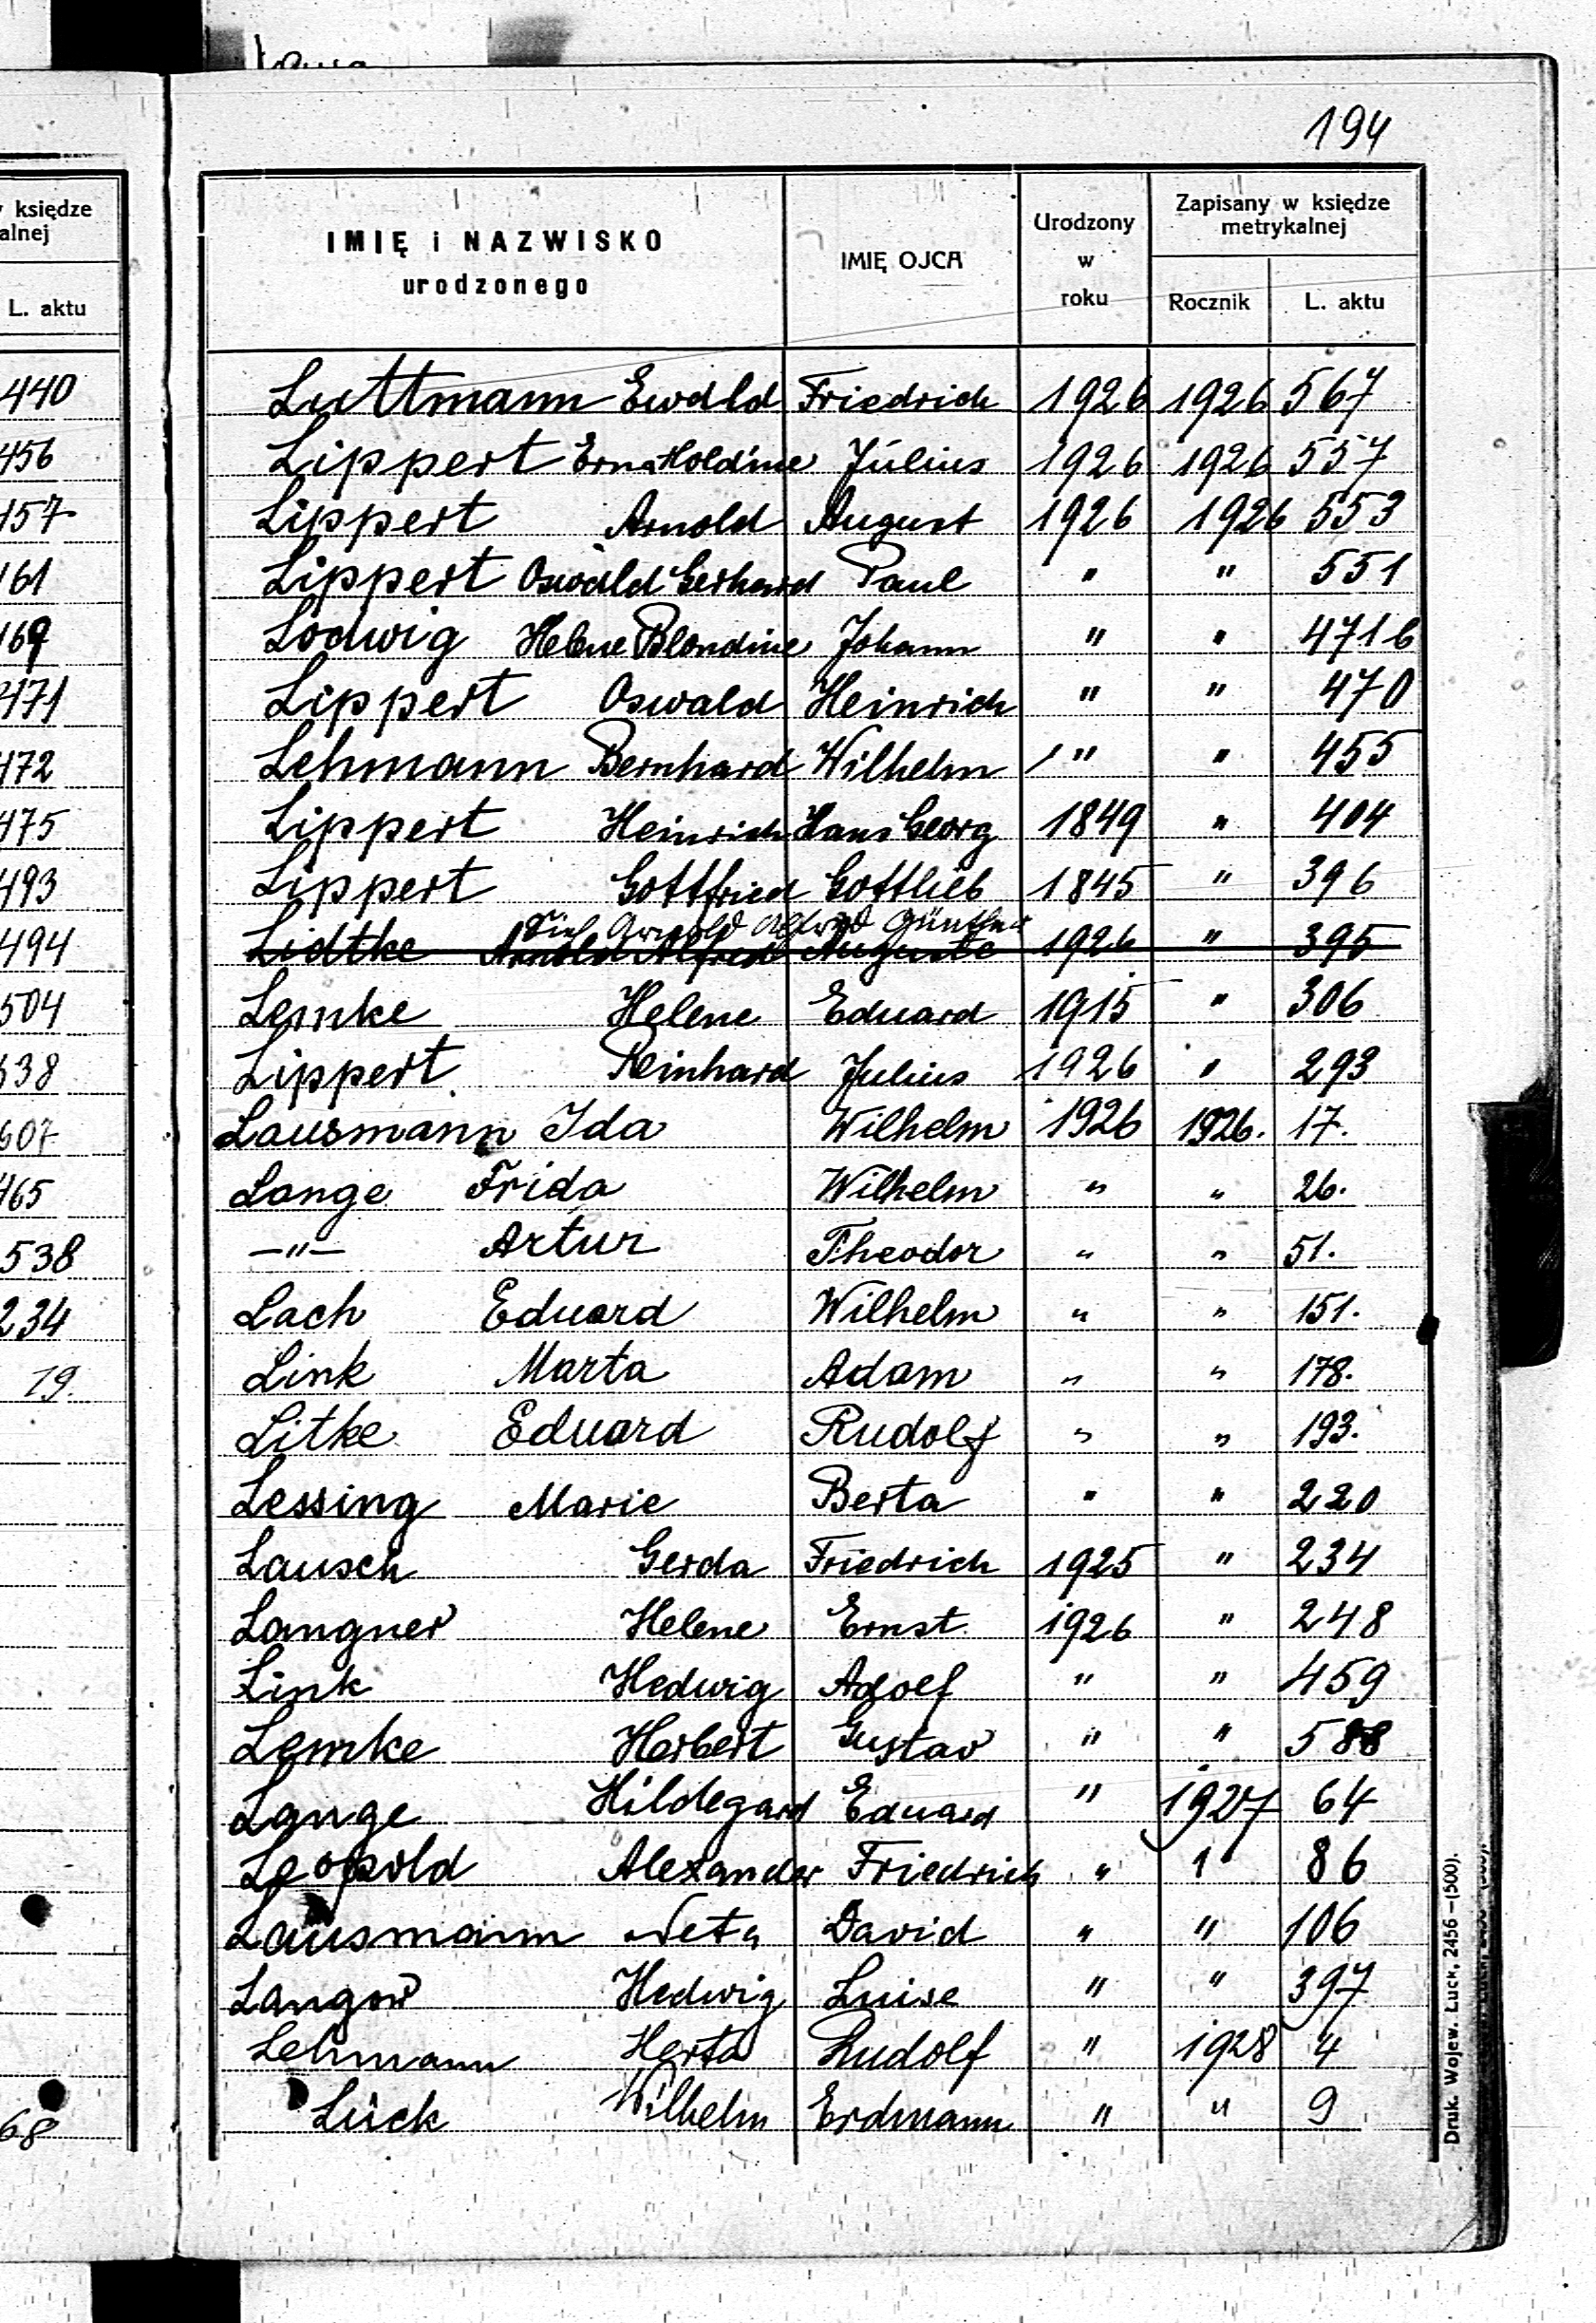 194
w księdze
alnej
L. aktu
440
456
157
161
169
471
472
475
493
494
504
538
607
465
538
234
19.
68
IMIĘ i NAZWISKO
urodzonego
IMIĘ OJCA
Urodzony
w
roku
Zapisany w księdze
metrykalnej
Rocznik L. aktu
Luttmann Ewald Friedrich 1926 1926 567
Lippert Erna Holdine Július 1926 1926 557
Lippert Arnold August 1926 1926 553
Lippert Oswald Gerhard Paul " " 551
Lodwig Helene Blondine Johann " " 471b
Lippert Oswald Heinrich " " 470
Lehmann Bernhard Wilhelm " " 455
Lippert Heinrich Hans Georg 1849 " 404
Lippert Gottfried Gottlieb 1845 " 396
Arnold Alfred Günther
Lidtke Arnold Alfred Auguste 1926 " 395
Lemke Helene Eduard 1915 " 306
Lippert Reinhard Julius 1926 " 293
Lausmann Ida Wilhelm 1926 1926. 17.
Lange Frida Wilhelm " " 26.
—"— Artur Theodor " " 51.
Lach Eduard Wilhelm " " 151.
Link Marta Adam " " 178.
Litke Eduard Rudolf " " 193.
Lessing Marie Berta " " 220
Lausch Gerda Friedrich 1925 " 234
Langner Helene Ernst 1926 " 248
Link Hedwig Adolf " " 459
Lemke Herbert Gustav " " 588
Lange Hildegard Eduard " 1927 64
Leopold Alexander Friedrich " " 86
Lausmann Neta David " " 106
Langow Hedwig Luise " " 397
Lehmann Herta Rudolf " 1928 4
Lück Wilhelm Erdmann " " 9
Druk. Wojew. Łuck, 2456—(500).